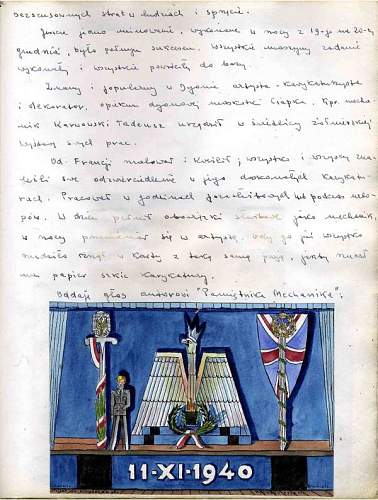 bezsensownych strat w ludziach i sprzęcie.
jedno minowanie, wykonane w nocy z 19-go na 20-ty
grudnia, było pełnym sukcesem. Wszystkie maszyny zadanie
wykonały i wszystkie powróciły do bazy.
Znany i popularny w Dyonie artysta - karykaturzysta
i dekorator, opiekun dyonowej maskotki Ciapka. Kpr. mecha-
nik Karnowski Tadeusz urządził w świetlicy żołnierskiej
wystawę swych prac.
Od Francji malował i kreślił, wszystko i wszyscy zna-
leźli swe odzwierciedlenie w jego doskonałych karykatu-
rach. Pracował w godzinach pozasłużbowych lub podczas urlo-
pów. W dzień pełnił obowiązki służbowe jako mechanik,
w nocy przemieniał się w artystę, gdy go już wszystko
w karty z taką samą pasją, jak
na papier szkic karykatury.
Oddaję głos autorowi "Pamiętnika Mechanika":
11-XI-1940